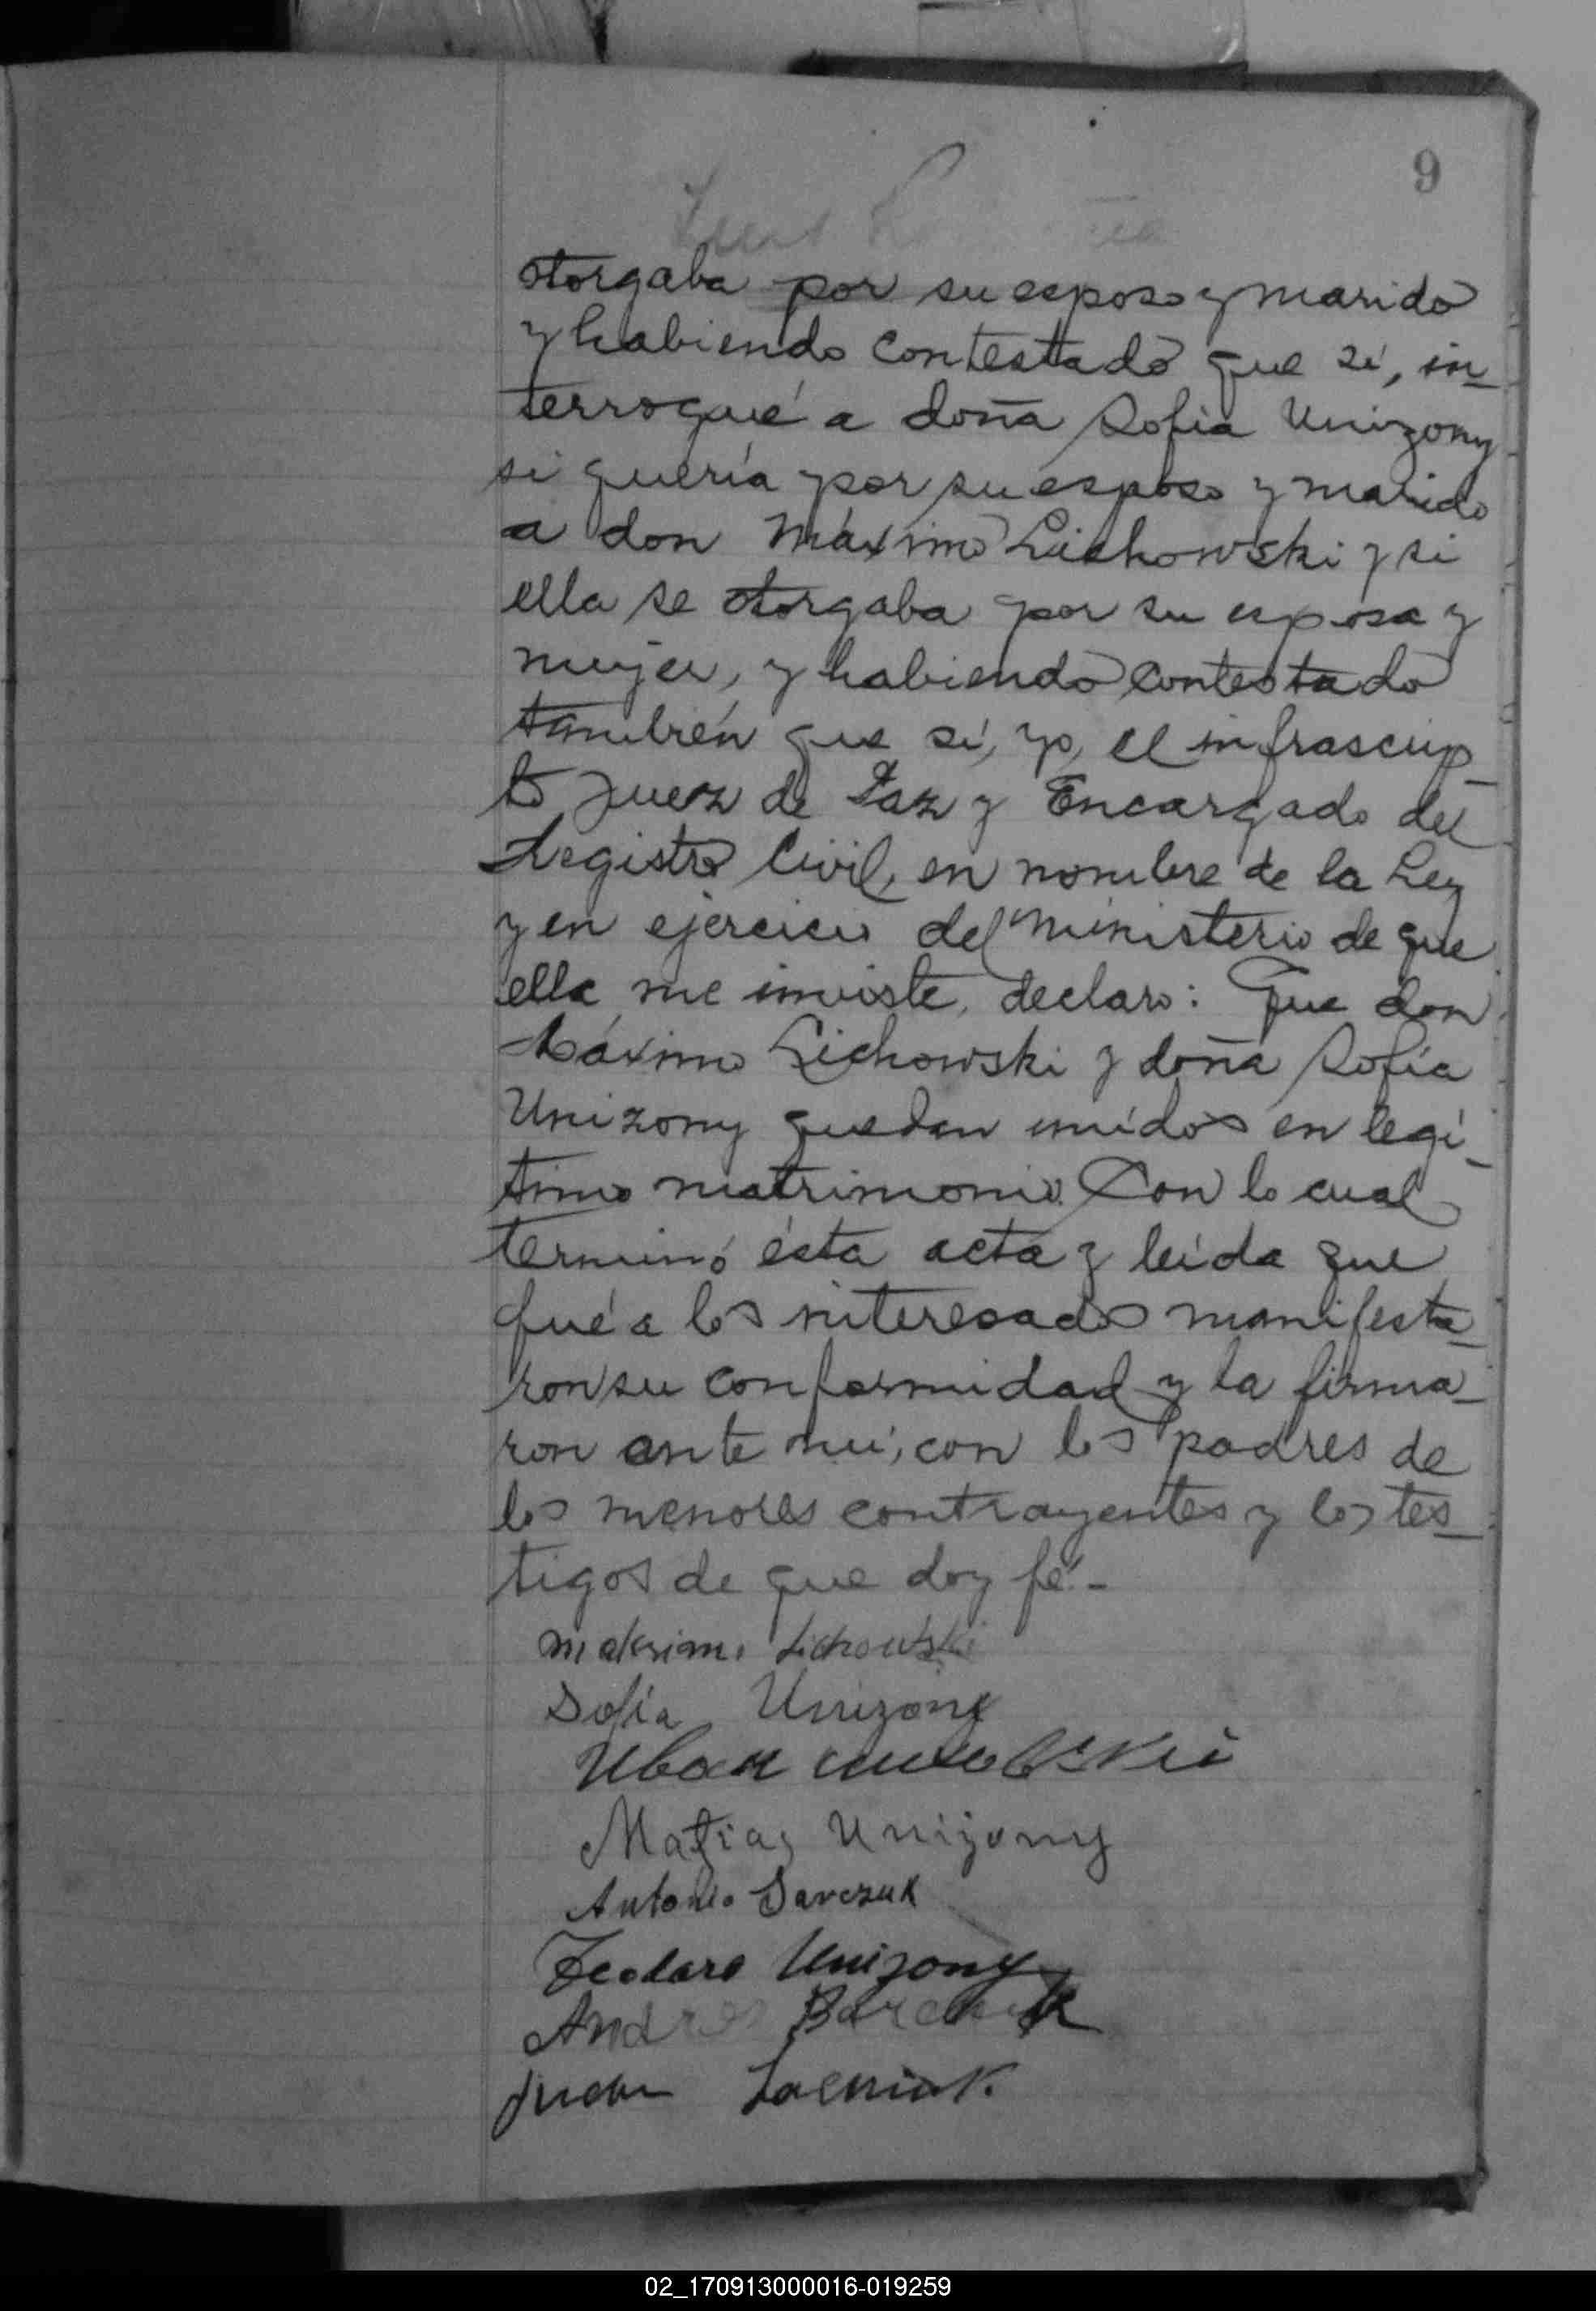 9
otorgaba por su esposo y marido
y habiendo contestado que sí, in-
terrogué a doña Sofía Unizony
si quería por su esposo y marido
a don Máximo Lichowski y si
ella se otorgaba por su esposa y
mujer, y habiendo contestado
también que sí, yo, el infrascrip-
to Juez de Paz y Encargado del
Registro Civil, en nombre de la Ley
y en ejercicio del Ministerio de que
ella me inviste, declaro: Que don
Máximo Lichowski y doña Sofía
Unizony quedan unidos en legí-
timo matrimonio. Con lo cual
terminó ésta acta y leída que
fué a los interesados manifesta-
ron su conformidad y la firma-
ron ante mí, con los padres de
los menores contrayentes y los tes-
tigos de que doy fé.-
Maksimo Lichowski
Sofia Unizony
Иван
Matias Unizony
Antonio Savczuk
Teodoro Unizony
Andres
Juan
02_170913000016-019259